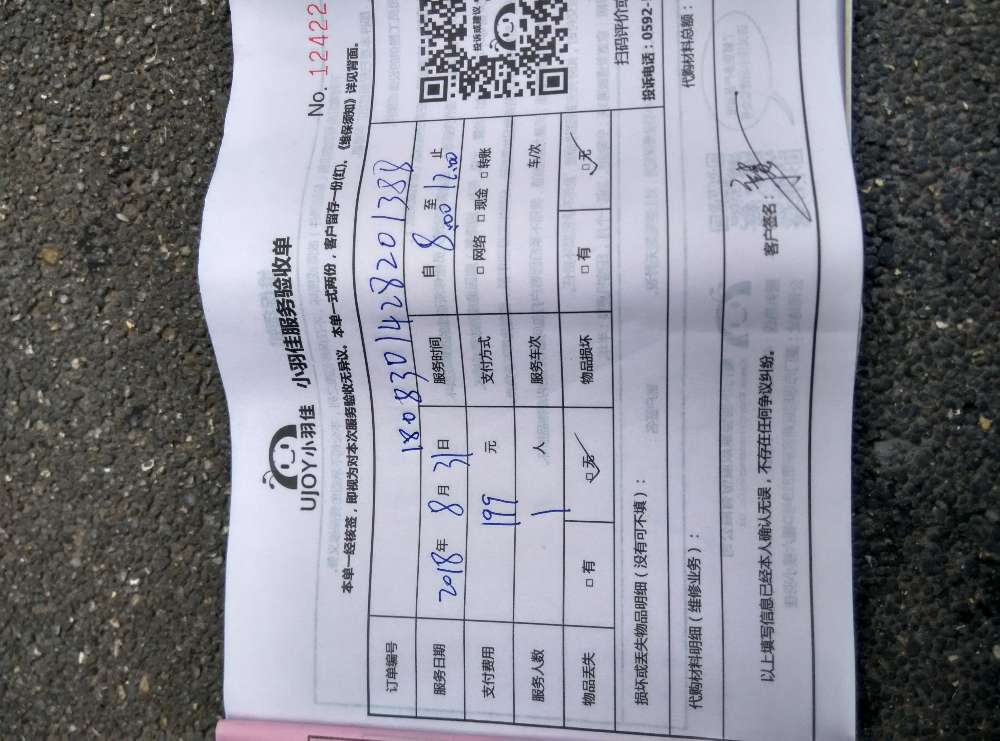 No. 12422
UJOY小羽佳 小羽佳服务验收单
本单一经核签，即视为对本次服务验收无异议。本单一式两份，客户留存一份(红)。《维保须知》详见背面。
订单编号 1808301428201388
服务日期 2018年 8月 31日 服务时间 自 8.00 至 12.00 止
支付费用 199 元 支付方式 □ 网络 □ 现金 □ 转账
服务人数 1 人 服务车次 车/次
物品丢失 □ 有 □ 无 物品损坏 □ 有 □ 无
损坏或丢失物品明细（没有可不填）：
代购材料明细（维修业务）：
代购材料总额：
以上填写信息已经本人确认无误，不存在任何争议纠纷。
客户签名：
投诉或建议
扫码评价或
投诉电话：0592-